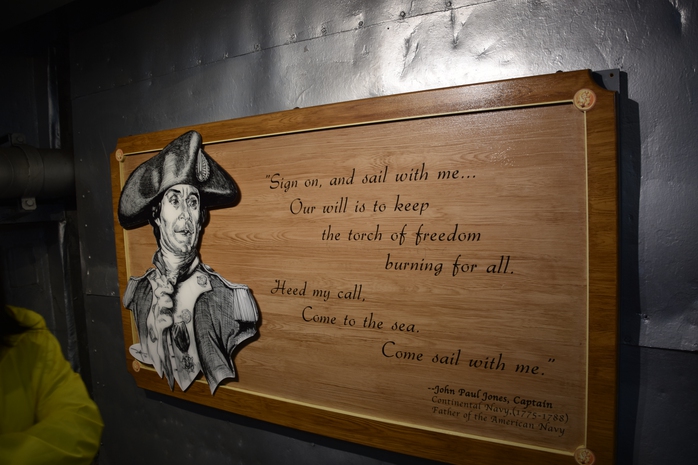 "Sign on, and sail with me...
Our will is to keep
the torch of freedom
burning for all.
Heed my call,
Come to the sea.
Come sail with me."
--John Paul Jones, Captain
Continental Navy,(1775-1788)
Father of the American Navy